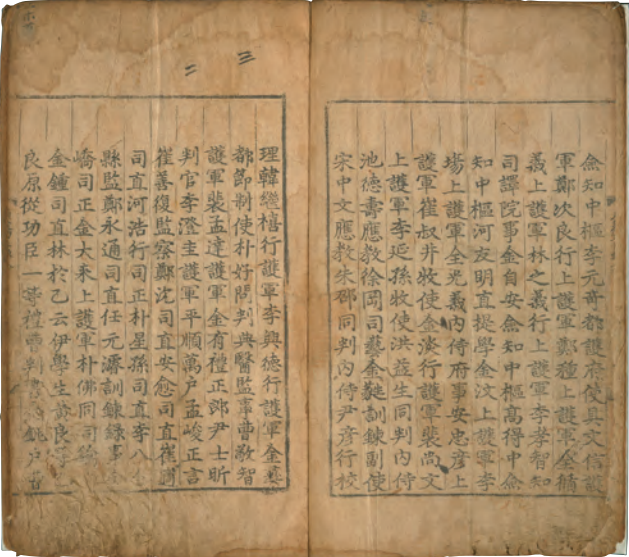 僉知中樞李元奇都護府使具文信護
軍鄭次良行上護軍鄭種上護軍金脩
義上護軍林之義行上護軍李孝智知
司譯院事金自安僉知中樞高得中僉
知中樞河友明直提學金汶上護軍李
場上護軍全光義內侍府事安忠彦上
護軍崔叔井牧使金淡行護軍裴尚文
上護軍李延孫牧使洪益生同判內侍
池德壽應敎徐岡司藝金 訓鍊副使
宋中文應敎朱 同判內侍尹彦行校
理韓繼禧行護軍李興德行護軍金
都節制使朴好問判典醫監事曹敬智
護軍裴孟達護軍金有禮正郎尹士昕
判官李澄圭護軍平順萬戶孟峻正言
崔善復監察鄭沈司直安愈司直崔
司直河浩行司正朴星孫司直李八
縣監鄭永通司直任元濬訓鍊錄事
嶠司正金大來上護軍朴佛同司
金鍾司直林於乙云伊學生 良
良原從功臣一等禮曹判 戶
三
二